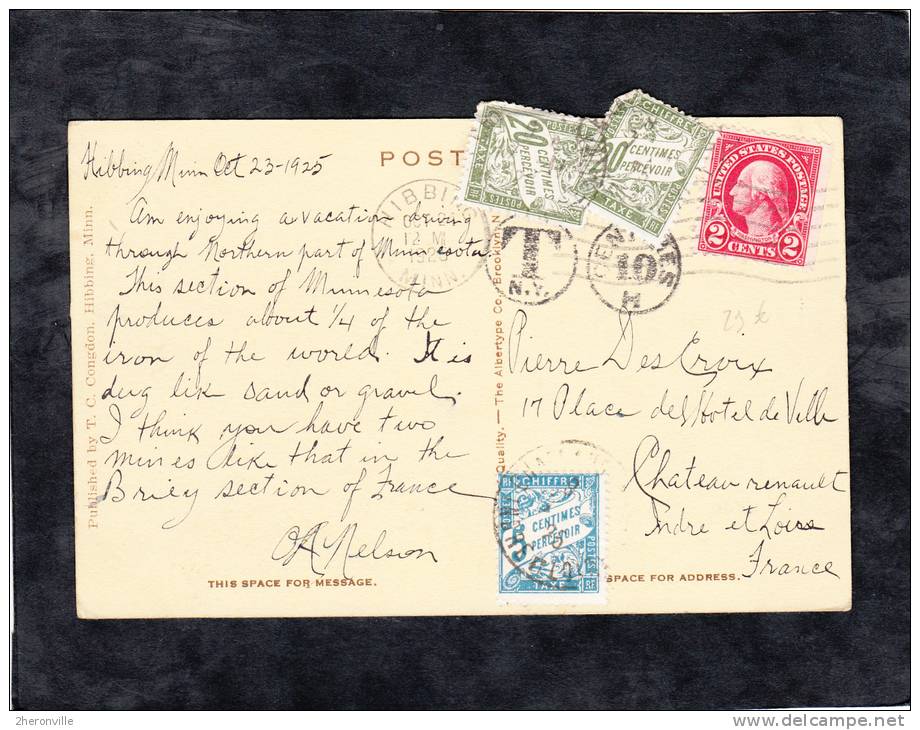 POST
Hibbing Minn Oct 23-1925
Am enjoying a vacation driving
through Northern part of Minnesota.
This section of Minnesota
produces about 1/4 of the
iron of the world. It is
dug like sand or gravel.
I think you have two
mines like that in the
Briey section of France
OA Nelson
THIS SPACE FOR MESSAGE.
Published by T. C. Congdon, Hibbing, Minn.
Quality. — The Albertype Co., Brooklyn, N.
HIBBING
OCT
12 M
1925
MINN.
T
N.Y.
CENTIMES
10
M
20
CENTIMES
PERCEVOIR
POSTES
TAXE
CHIFFRE
CENTIMES
PERCEVOIR
TAXE
POSTES
UNITED STATES POSTAGE
WASHINGTON
2 CENTS 2
23 €
Pierre DesCroix
17 Place del Hotel de Ville
Chateaurenault
Indre et Loire
France
SPACE FOR ADDRESS.
RF CHIFFRE
5 CENTIMES
PERCEVOIR
POSTES
TAXE RF
2heronville
www.delcampe.net